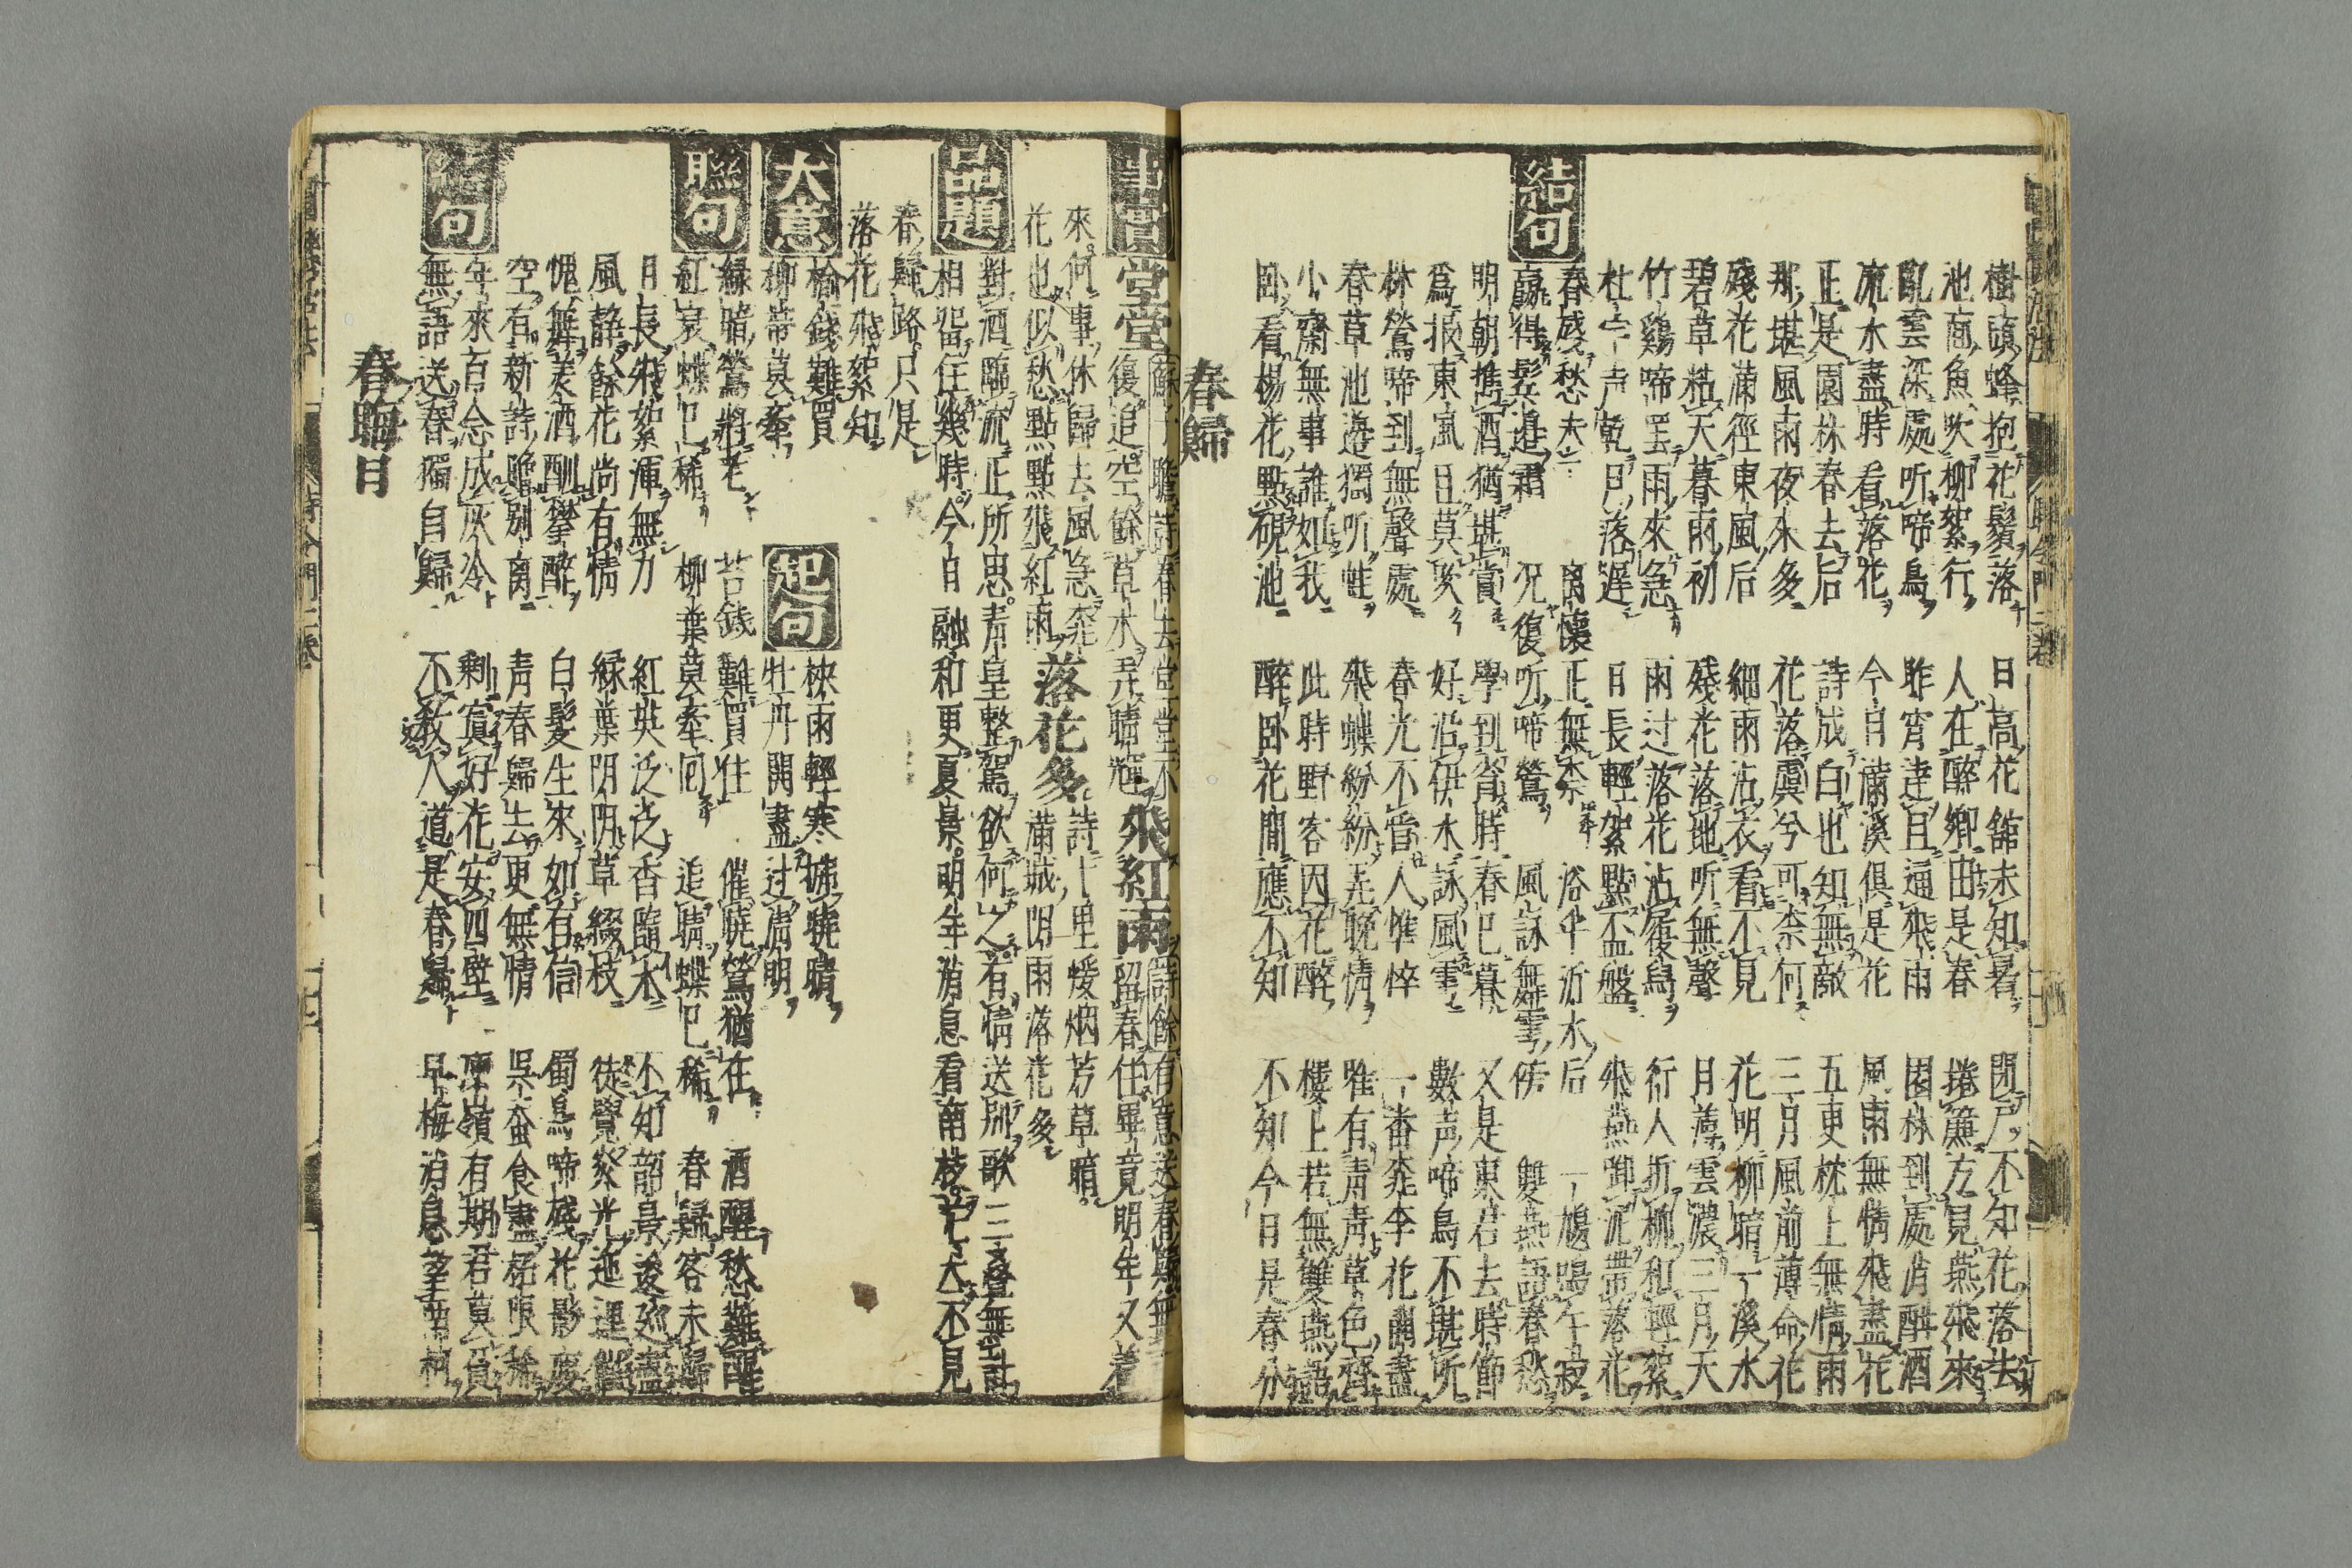 樹頭蜂抱花鬚落 日高花館未知暑 閉戶不知花落去
池面魚吹柳絮行 人在醉鄉田是春 捲簾方見燕飛來
亂雲深處听啼鳥 昨宵達旦逼飛雨 園林到處消醉酒
流水盡時看落花 今日滿溪俱是花 風雨無情飛盡花
正是園林春去后 詩成白也知無敵 五更枕上無情雨
那堪風雨夜來多 花落虞兮可奈何 三月風前薄命花
殘花滿徑東風后 細雨沾衣看不見 花明柳暗一溪水
碧草粘天暮雨初 殘花落地听無聲 月薄雲濃三月天
竹鷄啼罢雨來急 雨过落花沾履舄 行人折柳和輕絮
杜宇声乾日落遲 日長輕絮點盃盤 飛燕卸泥帶落花
春感愁夫 离懷 正無奈 浴牛沂水后 一鳩鳴午寂
結句 贏得髩邊霜 况復听啼鶯 風詠舞雩傍 雙燕語春愁
明朝携酒猶堪賞 學到肯時春巴暮 又是東君去時節
爲报東風且莫吹 好沿伊水詠風雩 數声啼鳥不堪听
林鶯啼到無聲處 春光不管人憔悴 一畨桃李花開盡
春草池邊獨听蛙 飛蝶紛紛弄晚情 唯有青青草色齊
小齋無事誰如我 此時野客因花醉 樓上若無雙燕語
卧看楊花點硯池 醉卧花間應不知 不知今日是春分
春歸
堂堂 復追空餘草木弄晴輝 飛紅雨 詩餘 有意送春歸無
留春住畢竟明年又着
來何事休歸去風急桃 詩十里煖烟芳草暗
花也似愁點點飛紅雨 落花多 滿城陰雨落花多
對酒臨流正所思青皇整駕欲何之有情送別歌三疊無
品題 相畱住幾時今日融和更夏景明年消息看南枝
春歸路只是
落花飛絮知
大意 榆錢難買 起句 楝雨輕寒拂曉晴
柳蒂莫牽 牡丹開盡过清明
聯句 綠暗鶯將老 苔錢難買住 催曉鶯猶在 酒醒愁難醒
紅衰蝶已稀 柳葉莫牽囘 追晴蝶已稀 春歸客未歸
日長飛絮渾無力 紅英泛泛香隨水 不知韶景逡廵盡
風静餘花尚有情 綠葉阴阴草綴枝 徒覺烝光迤逦
愧無美酒酬攀醉 白髮生來如有信 蜀鳥啼殘花影
空有新詩贈别离 青春歸去更無情 呉蚕食盡柘
年來百念成灰冷 剩宾好花安四壁 有期君莫負
結句 無語送春獨自歸 不教人道是春歸 早梅消息望南柯
春晦日